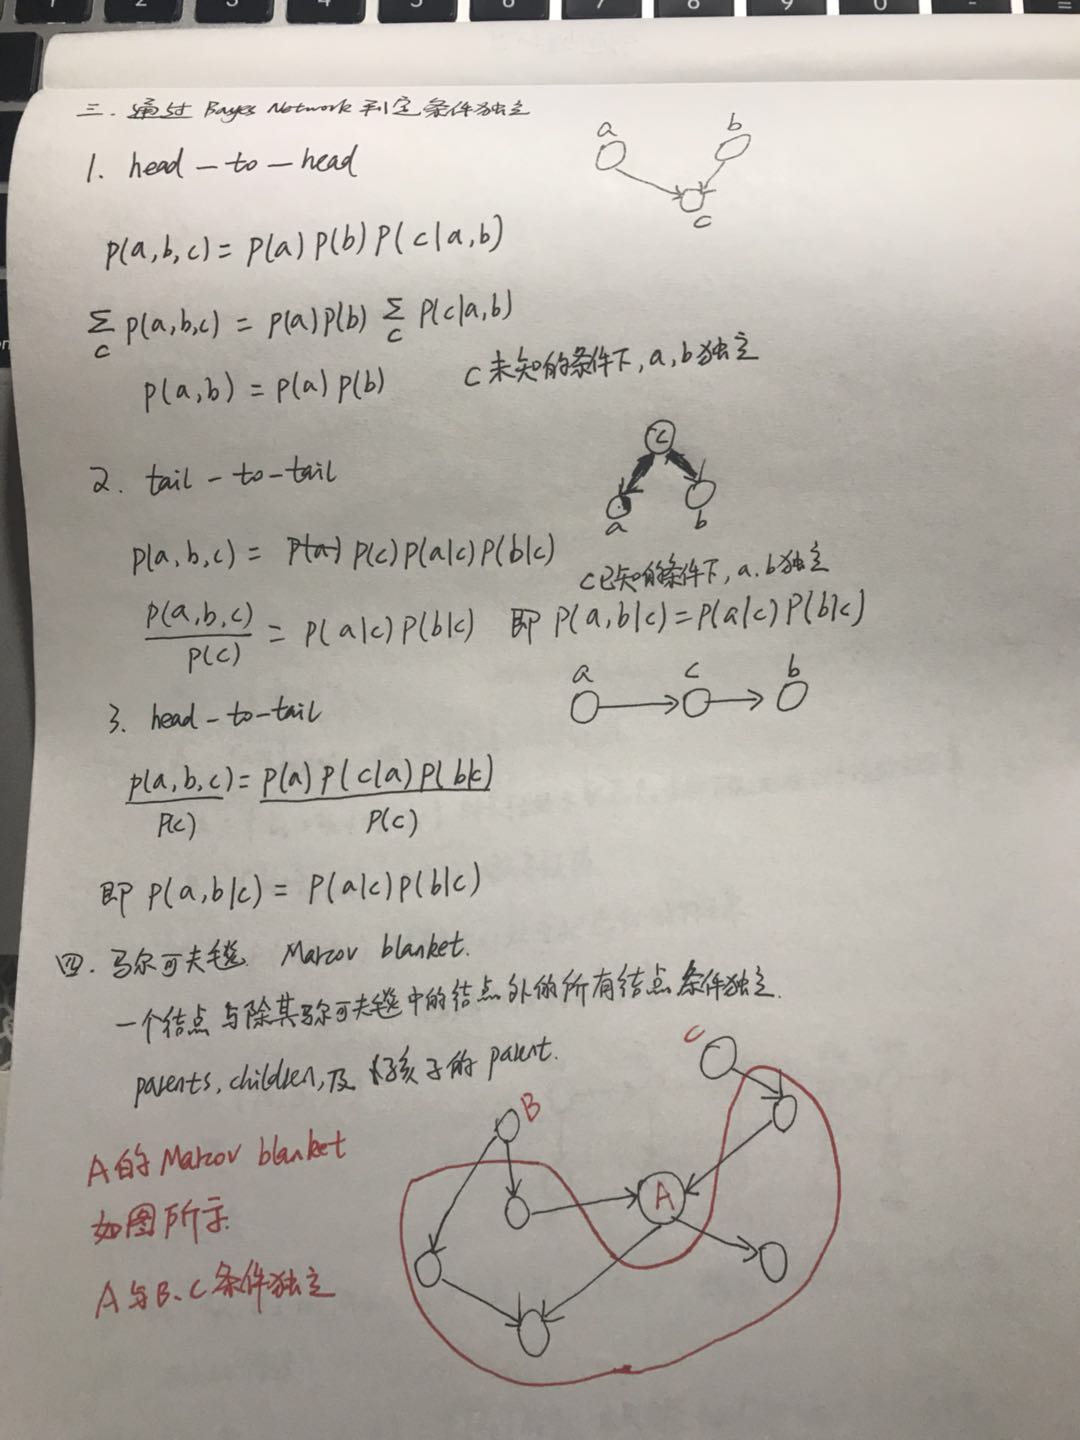 三. 通过 Bayes Network 判定条件独立
1. head-to-head
a b
c
p(a,b,c) = p(a) p(b) p(c|a,b)
∑ p(a,b,c) = p(a)p(b) ∑ p(c|a,b)
c c
p(a,b) = p(a) p(b) C未知的条件下,a,b独立
2. tail-to-tail
c
a b
p(a,b,c) = p(a) p(c) p(a|c) p(b|c)
C已知的条件下,a.b独立
p(a,b,c) / p(c) = p(a|c) p(b|c) 即 p(a,b|c) = p(a|c) p(b|c)
a c b
3. head-to-tail
p(a,b,c) / p(c) = p(a) p(c|a) p(b|c) / p(c)
即 p(a,b|c) = p(a|c) p(b|c)
四. 马尔可夫毯. Marcov blanket.
一个结点与除其马尔可夫毯中的结点外的所有结点条件独立.
parents, children, 及孩子的 parent.
C
B
A
A的 Marcov blanket
如图所示.
A与B、C条件独立